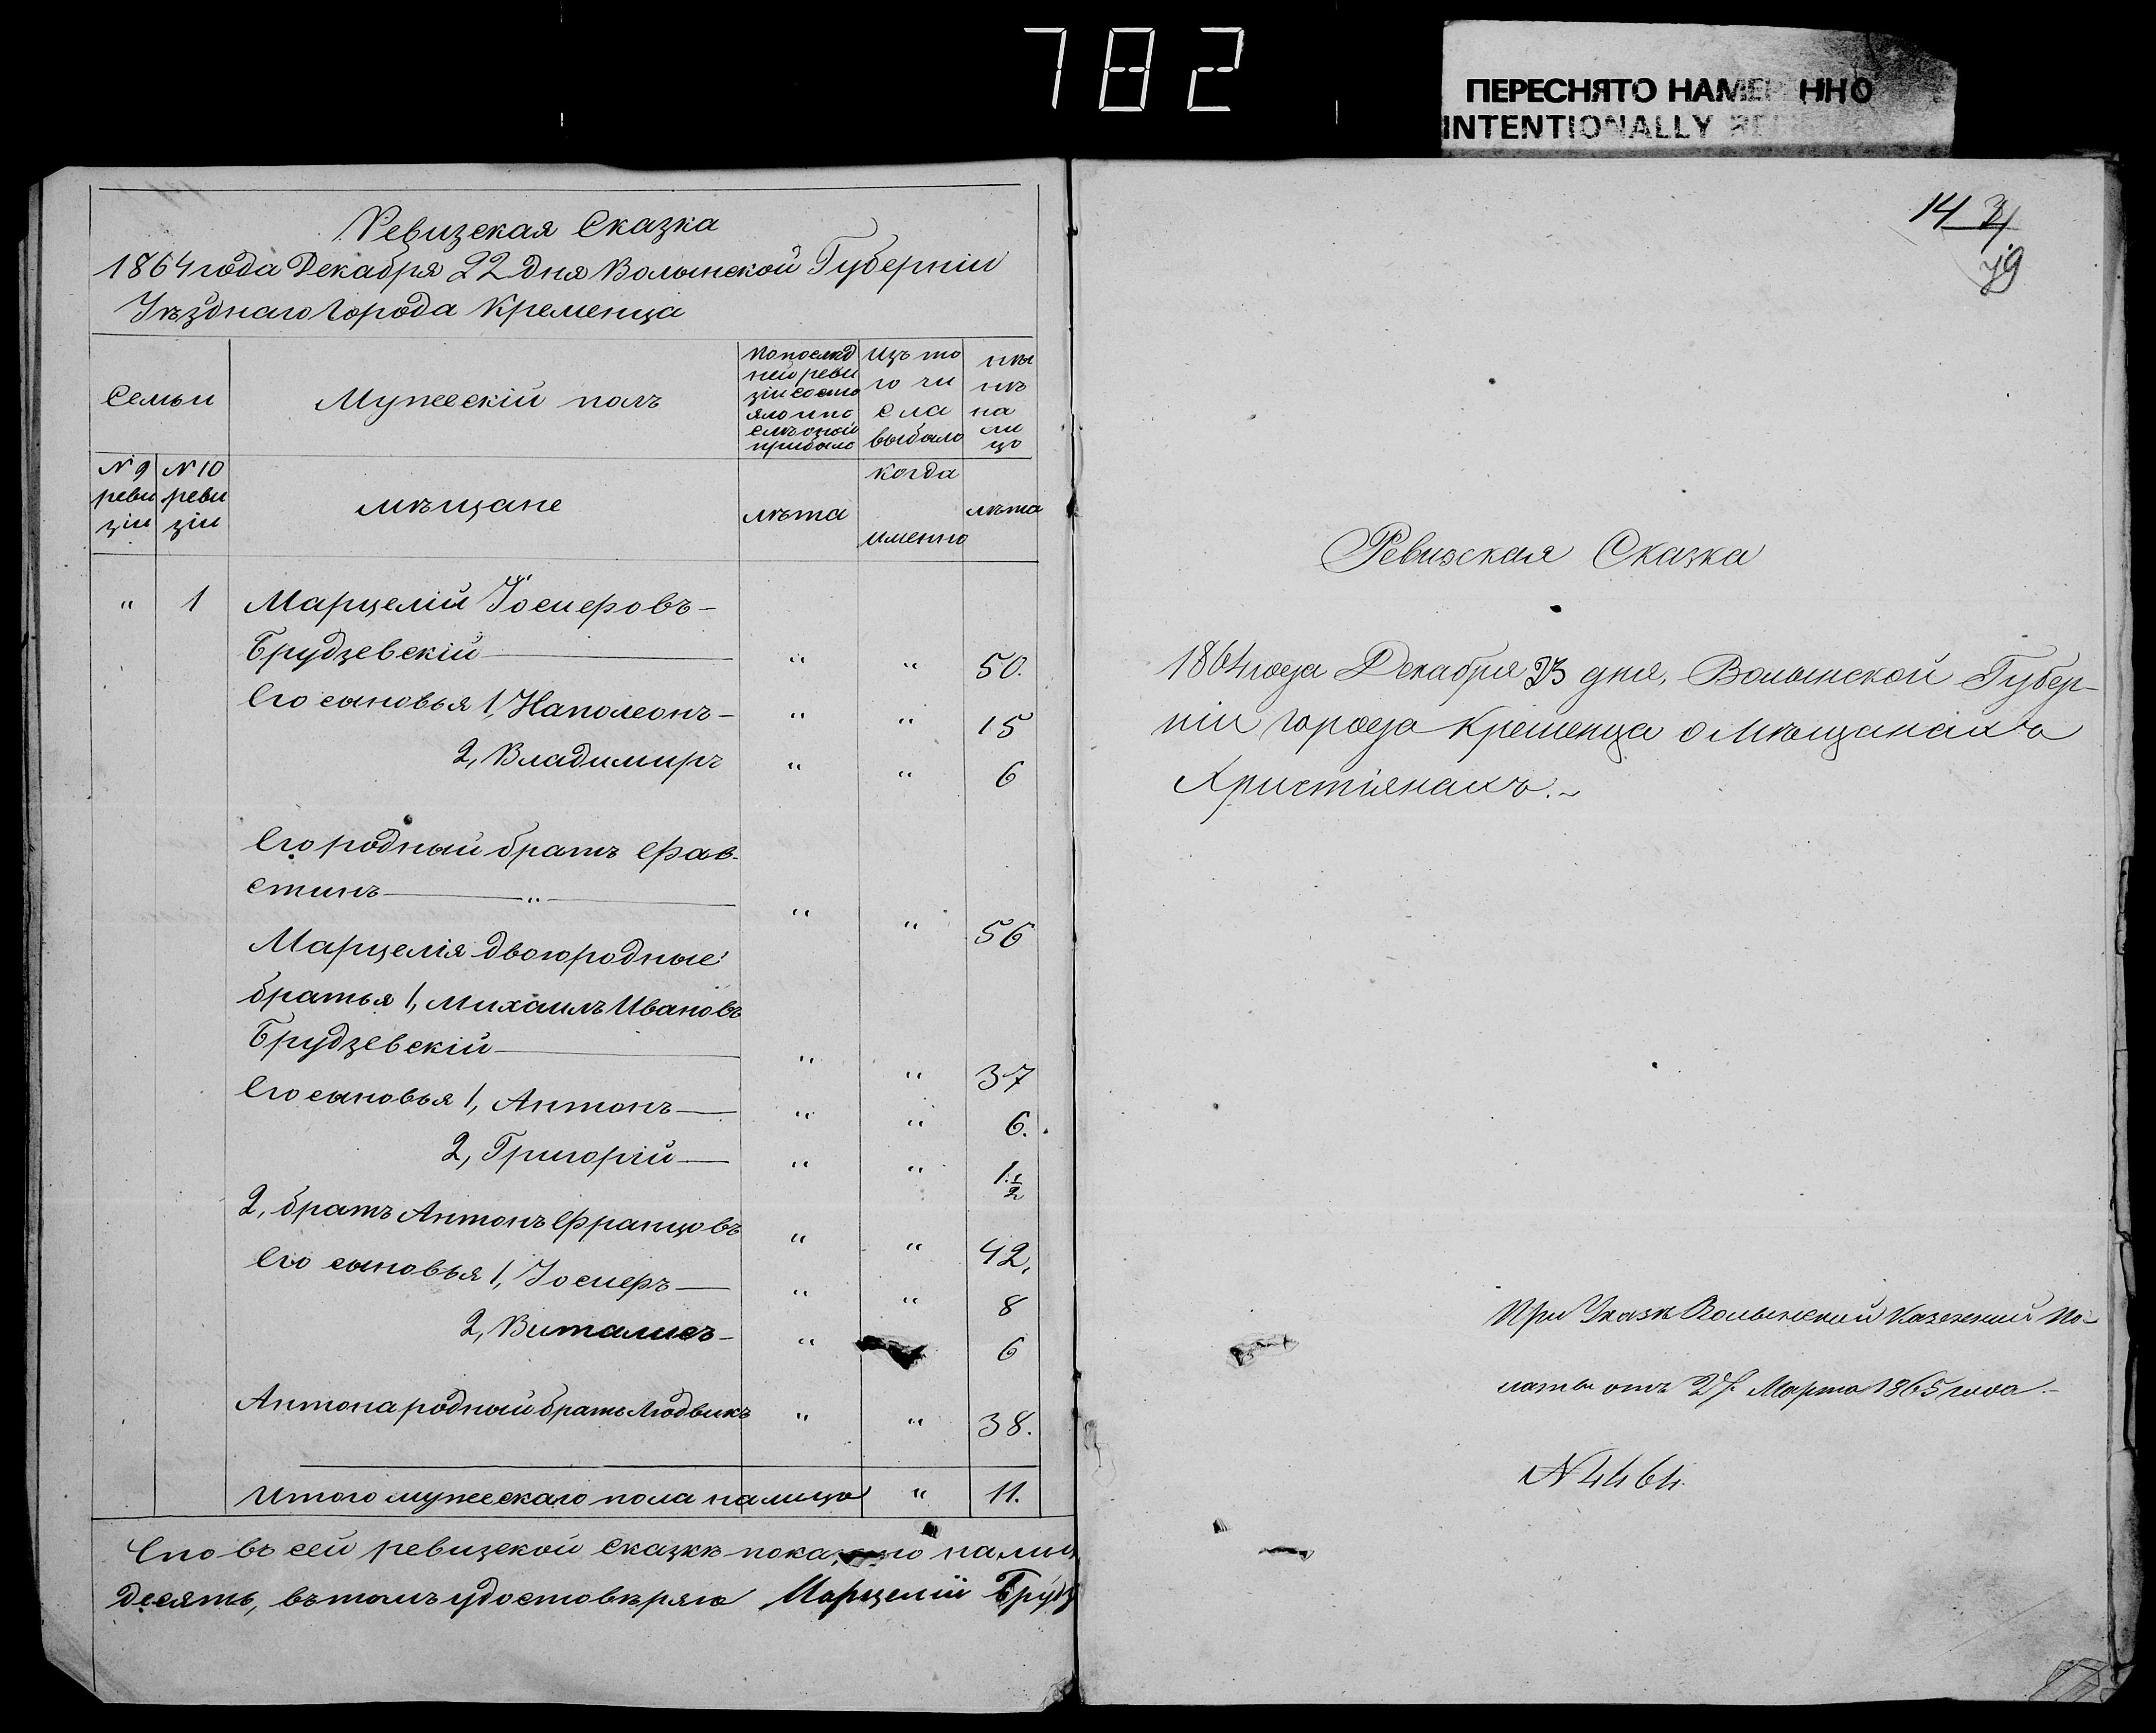 782
ПЕРЕСНЯТО НАМЕР ННО
INTENTIONALLY
Ревизская Сказка
1864 года Декабря 22 дня Волынской Губерніи
Уѣзднаго города Кременца
Семьи
Мужескій полъ
По послѣд
ней реви
зіи состо
яло и по
слѣ оной
прибыло
Изъ то
го чи
сла
выбыло
ны
нѣ
на
ли
цо
№ 9
реви
зіи
№ 10
реви
зіи
мѣщане
лѣта
когда
именно
лѣта
" 1 Марцелій Іосиферовъ-
Брудзевскій " " 50.
Его сыновья 1, Наполеонъ- " " 15
2, Владимиръ " " 6
Его родный братъ Фав-
стинъ " " " 56
Марцелія двоюродные
братья 1, Михаилъ Ивановъ
Брудзевскій " " 37
Его сыновья 1, Антонъ " " 6.
2, Григорій " " 1 1/2
2, братъ Антонъ Францовъ " " 42,
Его сыновья 1, Іосиферъ " " 8
2, Виталисъ- " 6
Антона родный братъ Людвикъ " " 38.
Итого мужескаго пола на лицо " 11.
Что въ сей ревизской сказкѣ показано на лиц
десять, въ томъ удостовѣряю Марцелій Брудз
14
79
Ревизская Сказка
1864 года Декабря 23 дня, Волынской Губер-
ніи города Кременца о Мѣщанахъ
Христіянахъ.~
При Указѣ Волынской Казенной Па-
латы отъ 27. Марта 1865 года.-
№ 4464.